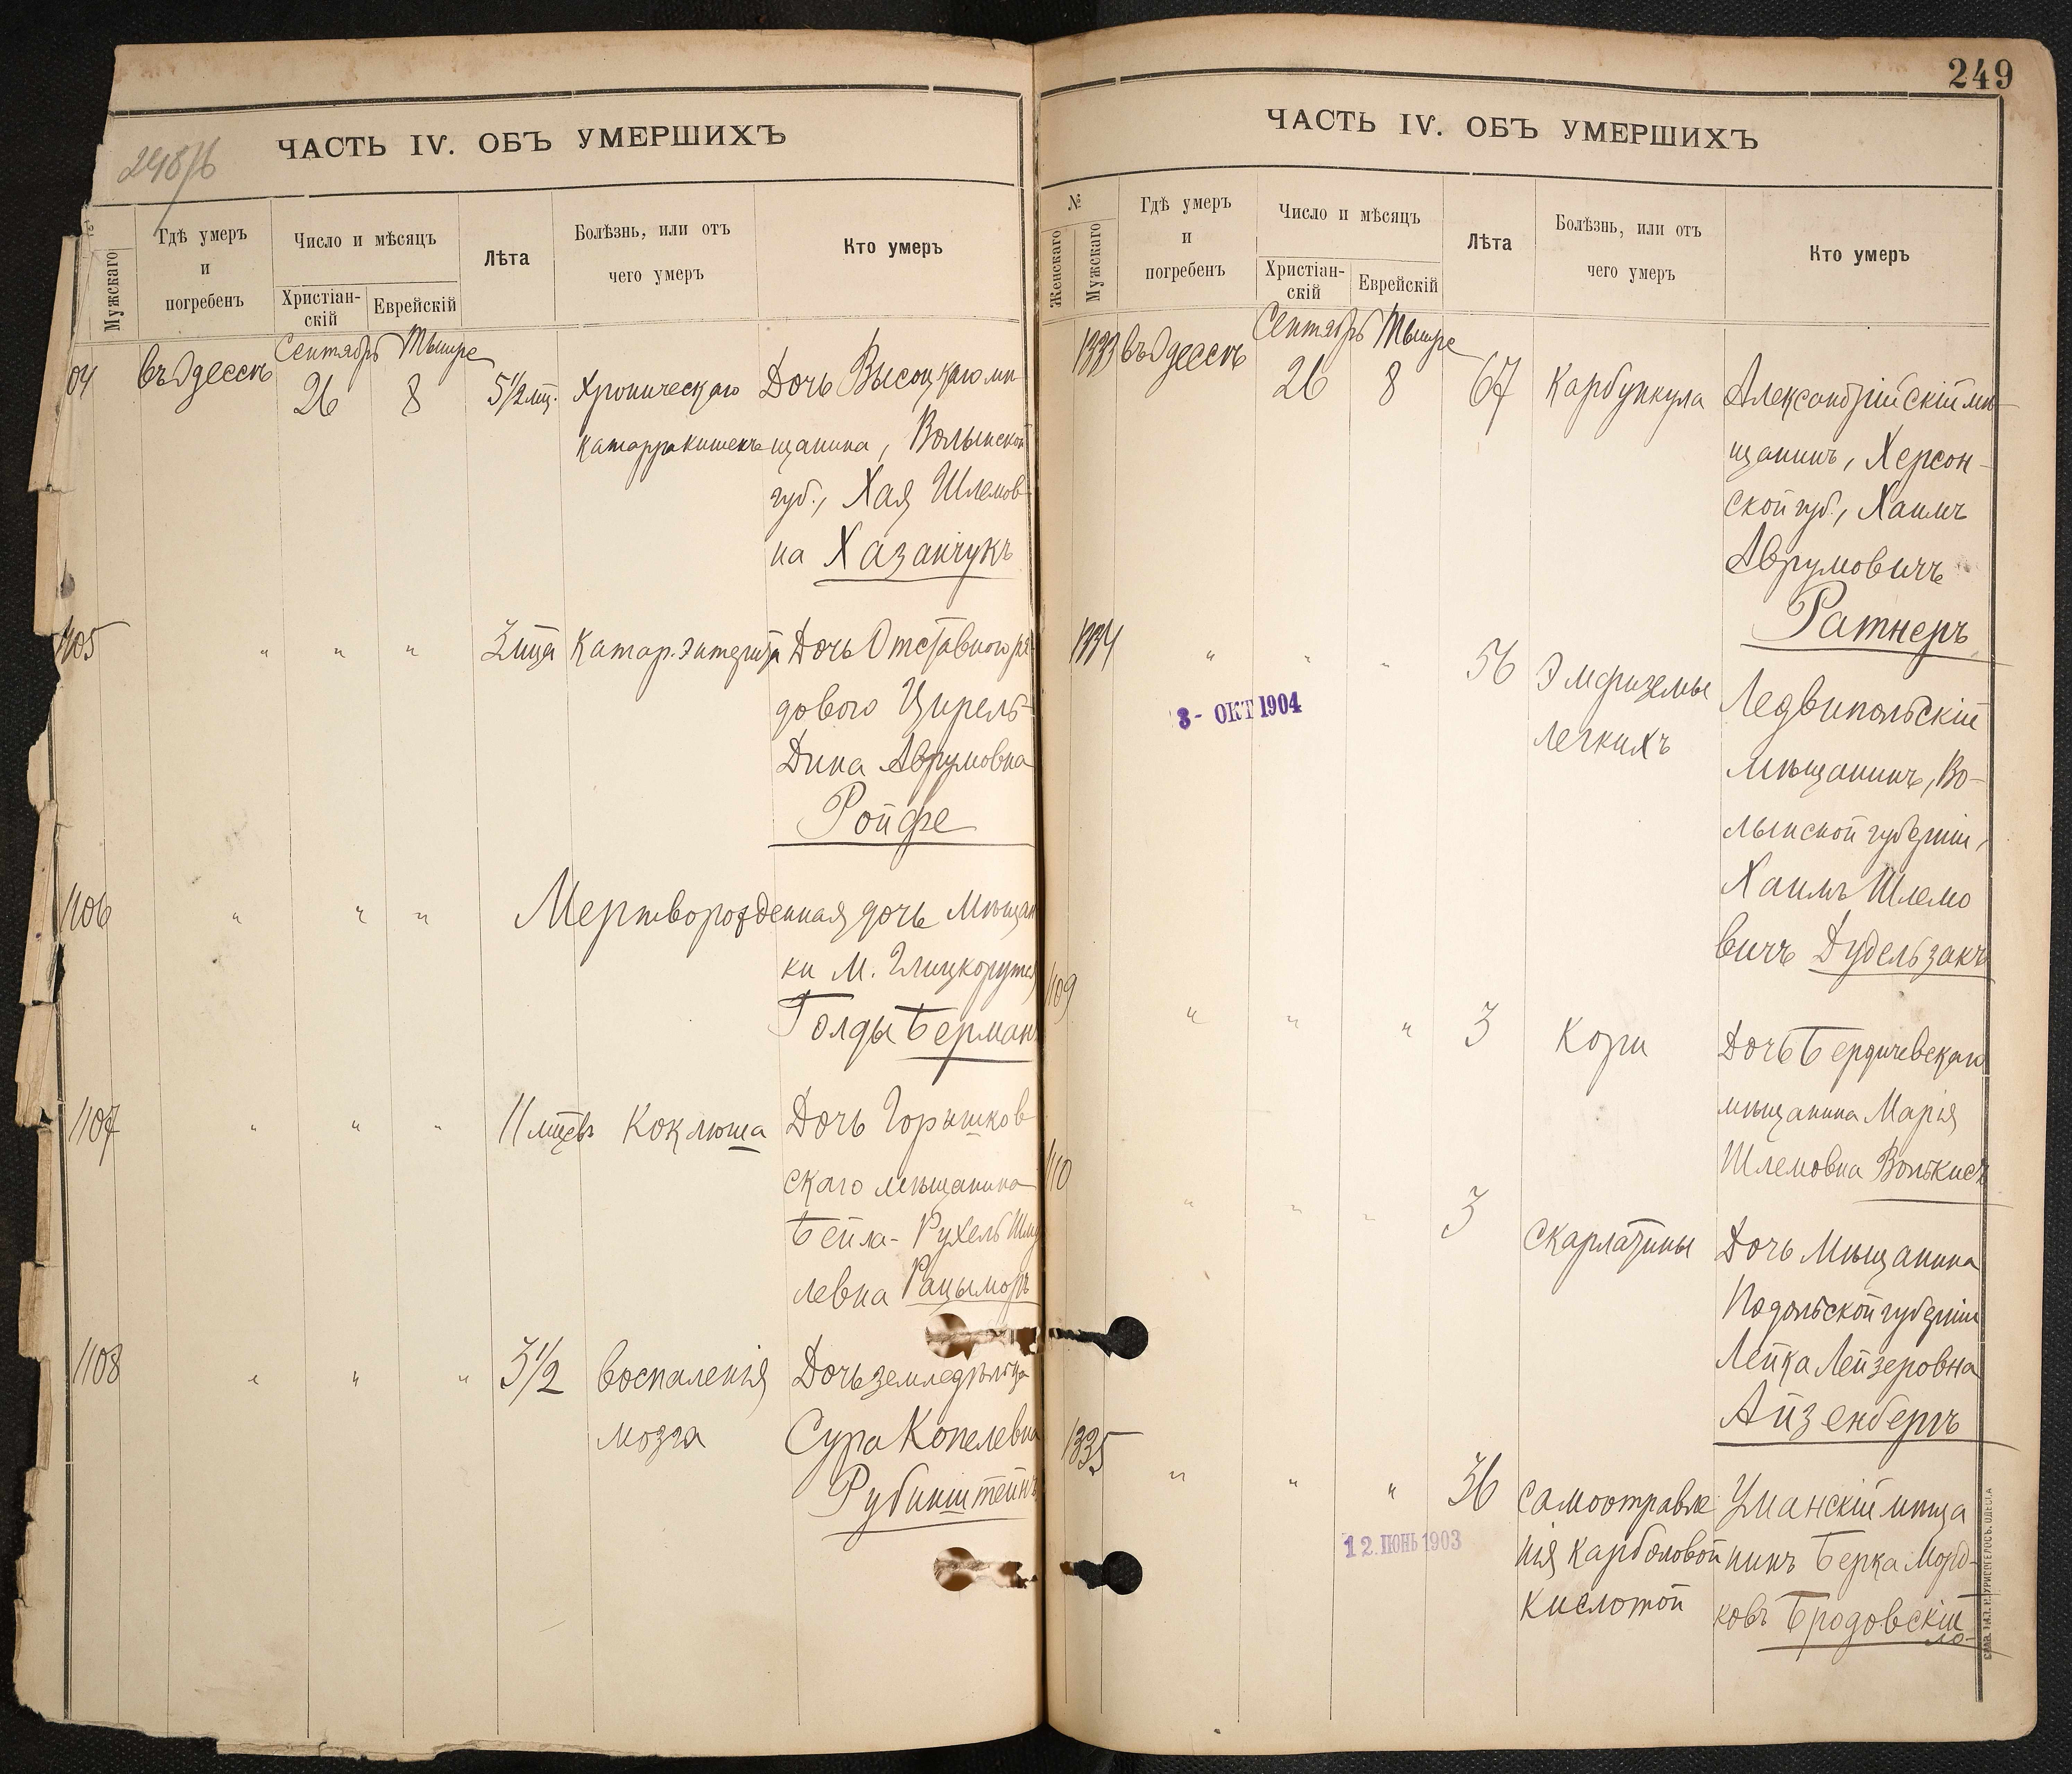 248/б
ЧАСТЬ IV. ОБЪ УМЕРШИХЪ
№
Мужскаго
Гдѣ умеръ
и
погребенъ
Число и мѣсяцъ
Христіан-
скій
Еврейскій
Лѣта
Болѣзнь, или отъ
чего умеръ
Кто умеръ
Сентябрь Тышре
04 въ Одессѣ 26 8 5½ мц. Хроническаго Дочь Высоцкаго мѣ-
катарра кишекъ щанина, Волынской
губ., Хая Шлемов-
на Хазанчукъ
1105 " " " 3 мца Катар. энтерита Дочь Отставного ря-
дового Цирель-
Дина Аврумовна
Ройфе
1106 " " " Мертворожденная дочь Мѣщан
ки М.
Голды Берманъ
1107 " " " 11 мцевъ Коклюша Дочь Горышков-
скаго мѣщанина
Бейла-Рухель Шму
левна
1108 " " " 3½ воспаленія Дочь земледѣльца
мозга Сура Копелевна
Рубинштейнъ
249
ЧАСТЬ IV. ОБЪ УМЕРШИХЪ
№
Женскаго
Мужскаго
Гдѣ умеръ
и
погребенъ
Число и мѣсяцъ
Христіан-
скій
Еврейскій
Лѣта
Болѣзнь, или отъ
чего умеръ
Кто умеръ
Сентябрь Тышре
1333 въ Одессѣ 26 8 67 Карбункула Александрійскій мѣ-
щанинъ, Херсон-
ской губ., Хаимъ
Аврумовичъ
Ратнеръ
1334 " " " 56 Эмфиземы Ледвипольскій
легкихъ мѣщанинъ, Во-
лынской губерніи,
Хаимъ Шлемо
вичъ Дудельзакъ
3- ОКТ 1904
1109 " " " 3 Кори Дочь Бердичевскаго
мѣщанина Марія
Шлемовна
1110 " " " 3 Скарлатины Дочь Мѣщанина
Подольской губерніи
Лейка Лейзеровна
Айзенбергъ
1335 " " " 36 Самоотравле Уманскій мѣща
нія карболовой нинъ Берка Морд-
кислотой ковъ Бродовскій
12. ІЮНЬ 1903